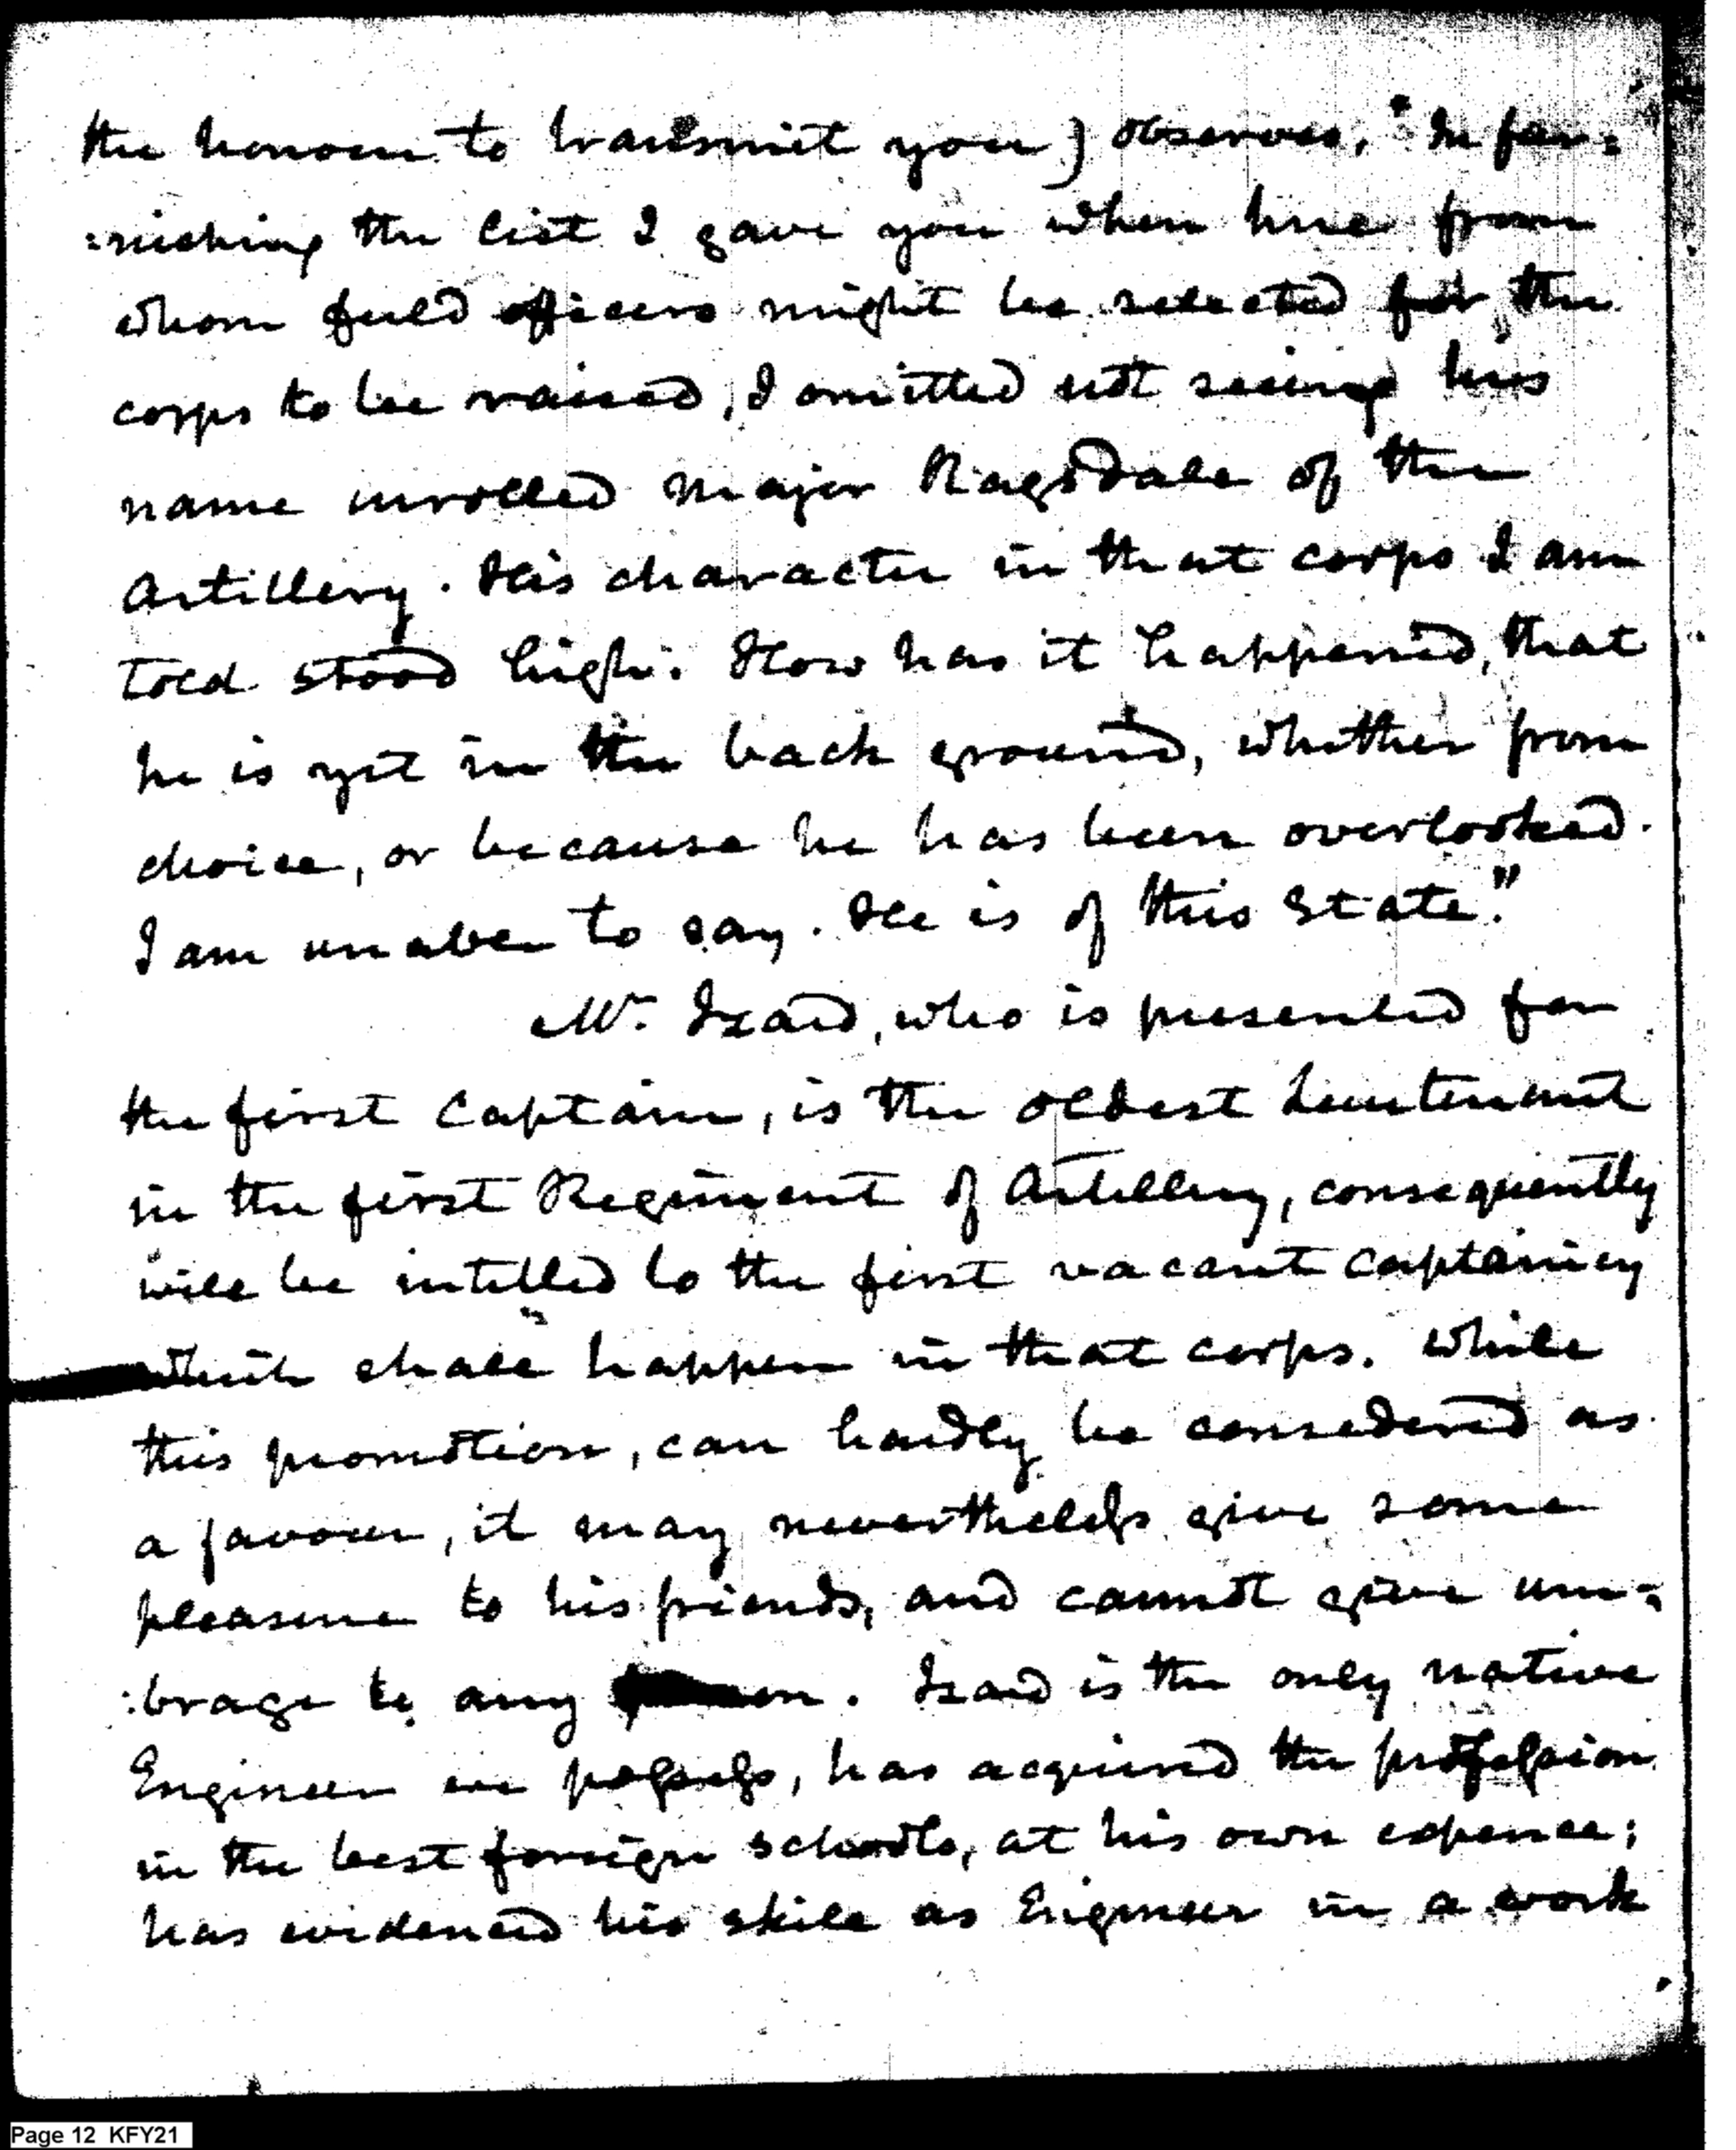 the honour to transmit you) observes, "In fur=
=nishing the list I gave you when here from
whom field officers might be selected for the
corps to be raised, I omitted not seeing his
name inrolled Major Ragsdale of the
Artillery. His character in that corps I am
told stood high. How has it happened, that
he is yet in the back ground, whether from
choice, or because he has been overlooked.
I am unable to say. He is of this State."
Mr. Izard, who is presented for
the first Captain, is the oldest Lieutenant
in the first Regiment of Artillery, consequently
will be intitled to the first vacant captaincy
which shall happen in that corps. While
this promotion, can hardly be considered as
a favour, it may nevertheless give some
pleasure to his friends, and cannot give um=
:brage to any . Izard is the only native
Engineer we possess, has acquired the profession
in the best foreign schools, at his own expence;
has evidenced his skill as Engineer in a work
Page 12 KFY21